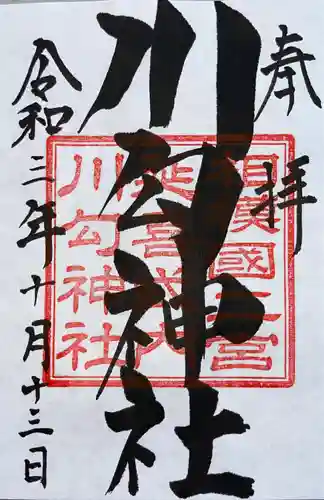 奉拝
川勾神社
令和三年十月十三日
相模國二宮
延喜式内
川勾神社